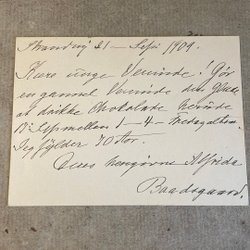 Strandvej 21 – Sept 1909.
Kære unge Veninde! Gør
en gammel Veninde den Glæde
at drikke Chokolade herinde
Kl mellem 1 – 4 – Fredag
Jeg fylder 70 Aar.
Deres hengivne Alfrida
Baadsgaard.